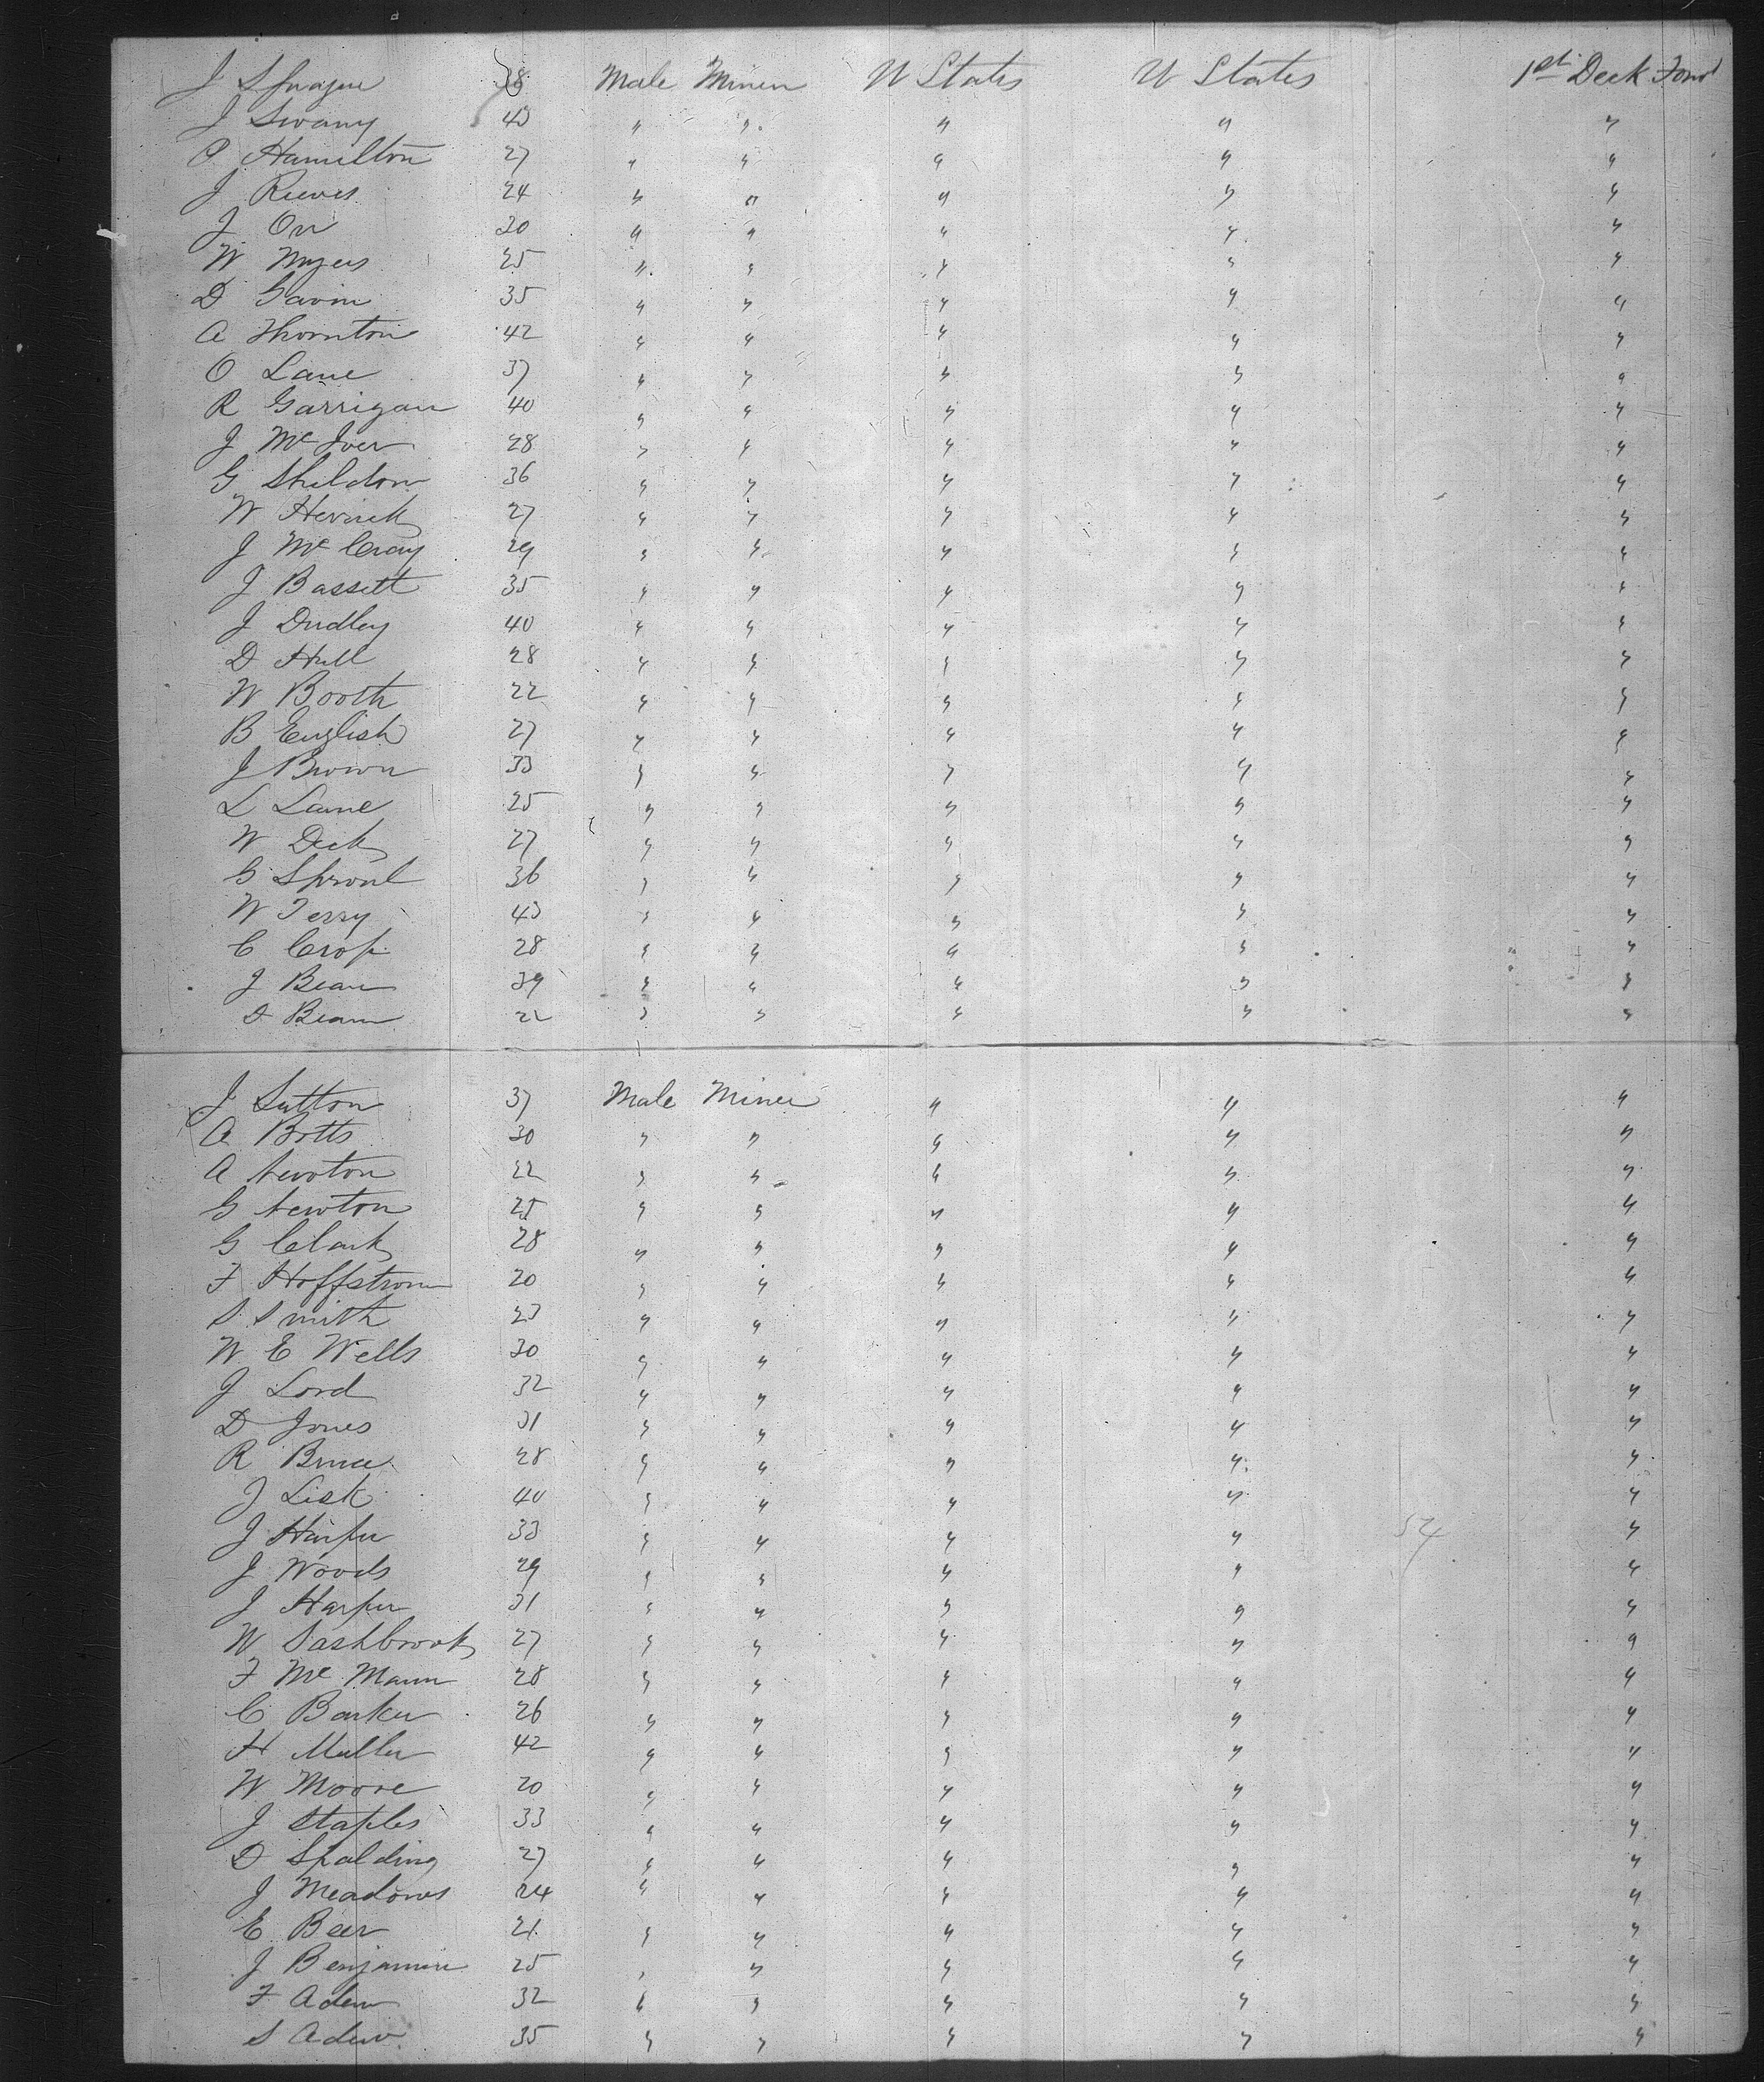 J Sprague 38 Male Miner U States U States 1st Deck Forwd
J Swany 43 " " " " "
P Hamilton 27 " " " " "
J Reeves 24 " " " " "
J Orr 30 " " " " "
W Myers 25 " " " " "
D Gavin 35 " " " " "
A Thornton 42 " " " " "
O Lane 37 " " " " "
R Garrigan 40 " " " " "
J McIver 28 " " " " "
G Sheldon 36 " " " " "
W Herrick 27 " " " " "
J McCray 29 " " " " "
J Bassett 35 " " " " "
J Dudley 40 " " " " "
D Hull 28 " " " " "
W Booth 22 " " " " "
B English 27 " " " " "
J Brown 33 " " " " "
L Lane 25 " " " " "
W Deck 27 " " " " "
G Sproul 36 " " " " "
W Terry 43 " " " " "
C Crop 28 " " " " "
J Bean 39 " " " " "
D Beam 22 " " " " "
J Sutton 37 Male Miner " " "
A Botts 30 " " " " "
A Newton 22 " " " " "
G Newton 25 " " " " "
G Clark 28 " " " " "
F Hoffstrom 20 " " " " "
S Smith 23 " " " " "
W E Wells 30 " " " " "
J Lord 32 " " " " "
D Jones 31 " " " " "
R Bruce 28 " " " " "
J Lisk 40 " " " " "
J Harper 33 " " " " "
J Woods 29 " " " " "
J Harper 31 " " " " "
W Sashbrook 27 " " " " "
F McMann 28 " " " " "
C Barker 26 " " " " "
H Muller 42 " " " " "
W Moore 20 " " " " "
J Staples 33 " " " " "
D Spalding 27 " " " " "
J Meadows 24 " " " " "
E Beer 21 " " " " "
J Benjamin 25 " " " " "
F Aden 32 " " " " "
S Aden 35 " " " " "